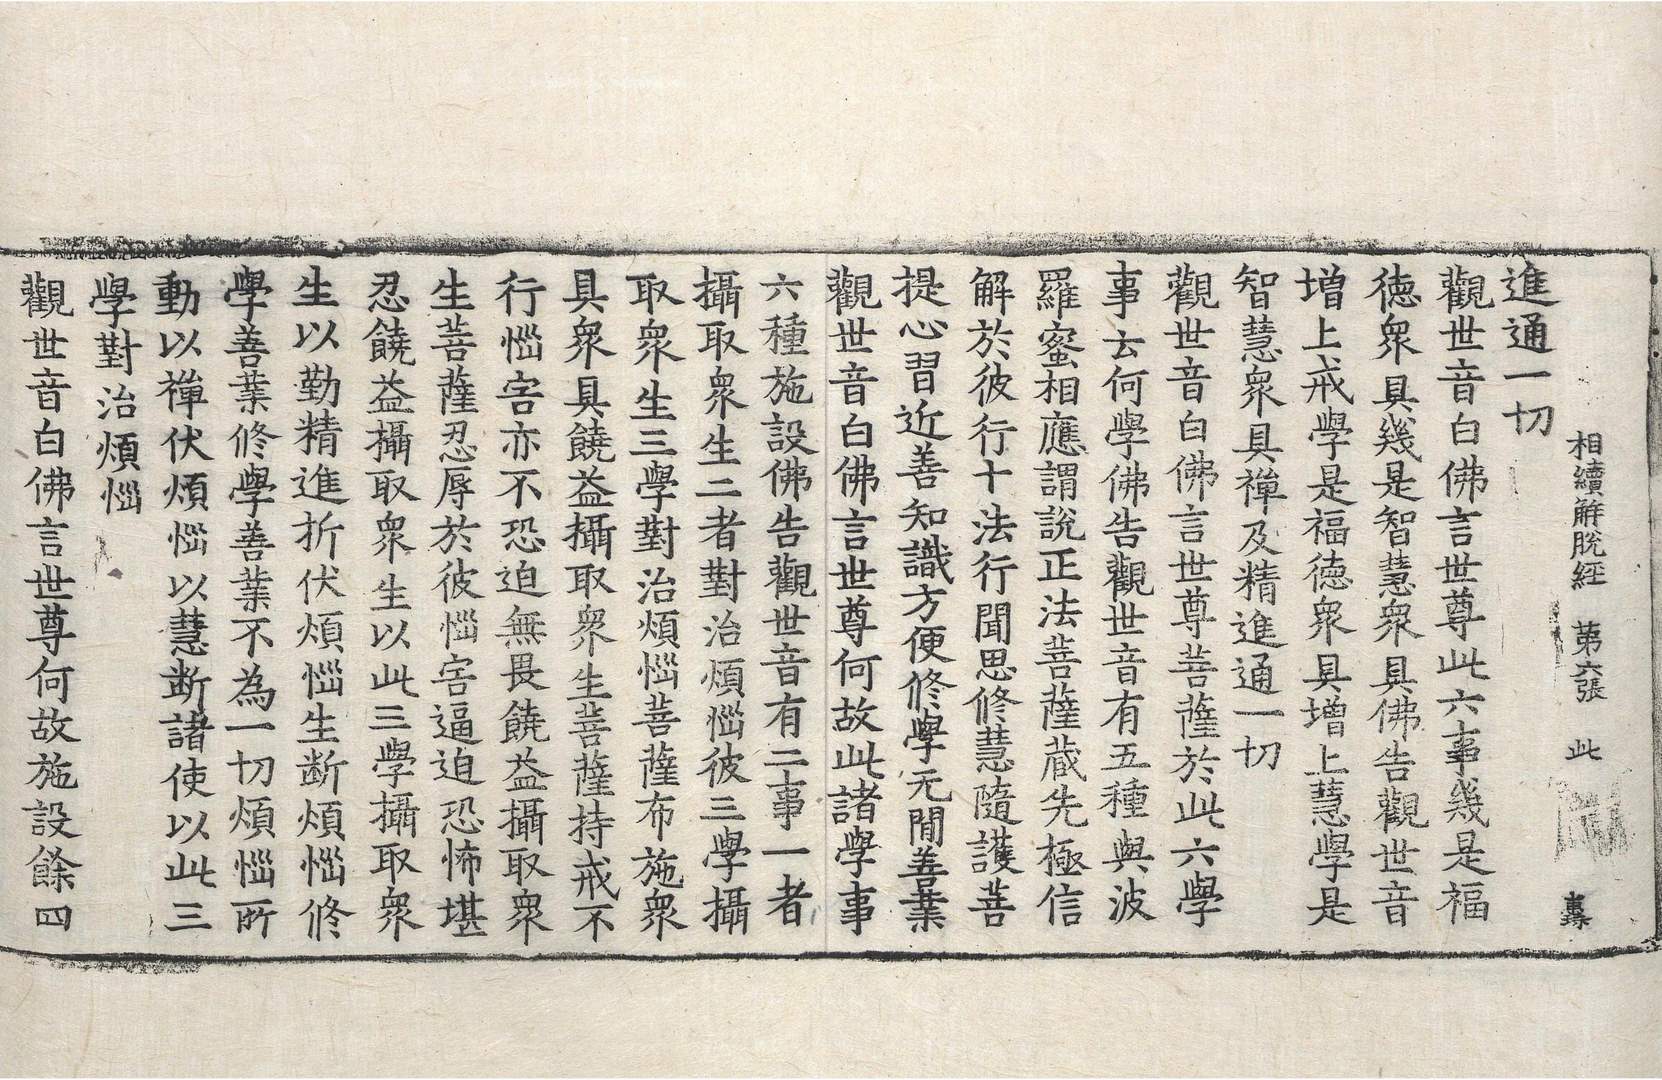 相續解脫經 第六張 此
進通一切
觀世音白佛言世尊此六事幾是福
德衆具幾是智慧衆具佛告觀世音
增上戒學是福德衆具增上慧學是
智慧衆具禪及精進通一切
觀世音白佛言世尊菩薩於此六學
事云何學佛告觀世音有五種與波
羅蜜相應謂說正法菩薩藏先極信
解於彼行十法行聞思修慧隨護菩
提心習近善知識方便修學无閒善業
觀世音白佛言世尊何故此諸學事
六種施設佛告觀世音有二事一者
攝取衆生二者對治煩惱彼三學攝
取衆生三學對治煩惱菩薩布施衆
具衆具饒益攝取衆生菩薩持戒不
行惱害亦不恐迫無畏饒益攝取衆
生菩薩忍辱於彼惱害逼迫恐怖堪
忍饒益攝取衆生以此三學攝取衆
生以勤精進折伏煩惱生斷煩惱修
學善業修學善業不為一切煩惱所
動以禪伏煩惱以慧斷諸使以此三
學對治煩惱
觀世音白佛言世尊何故施設餘四